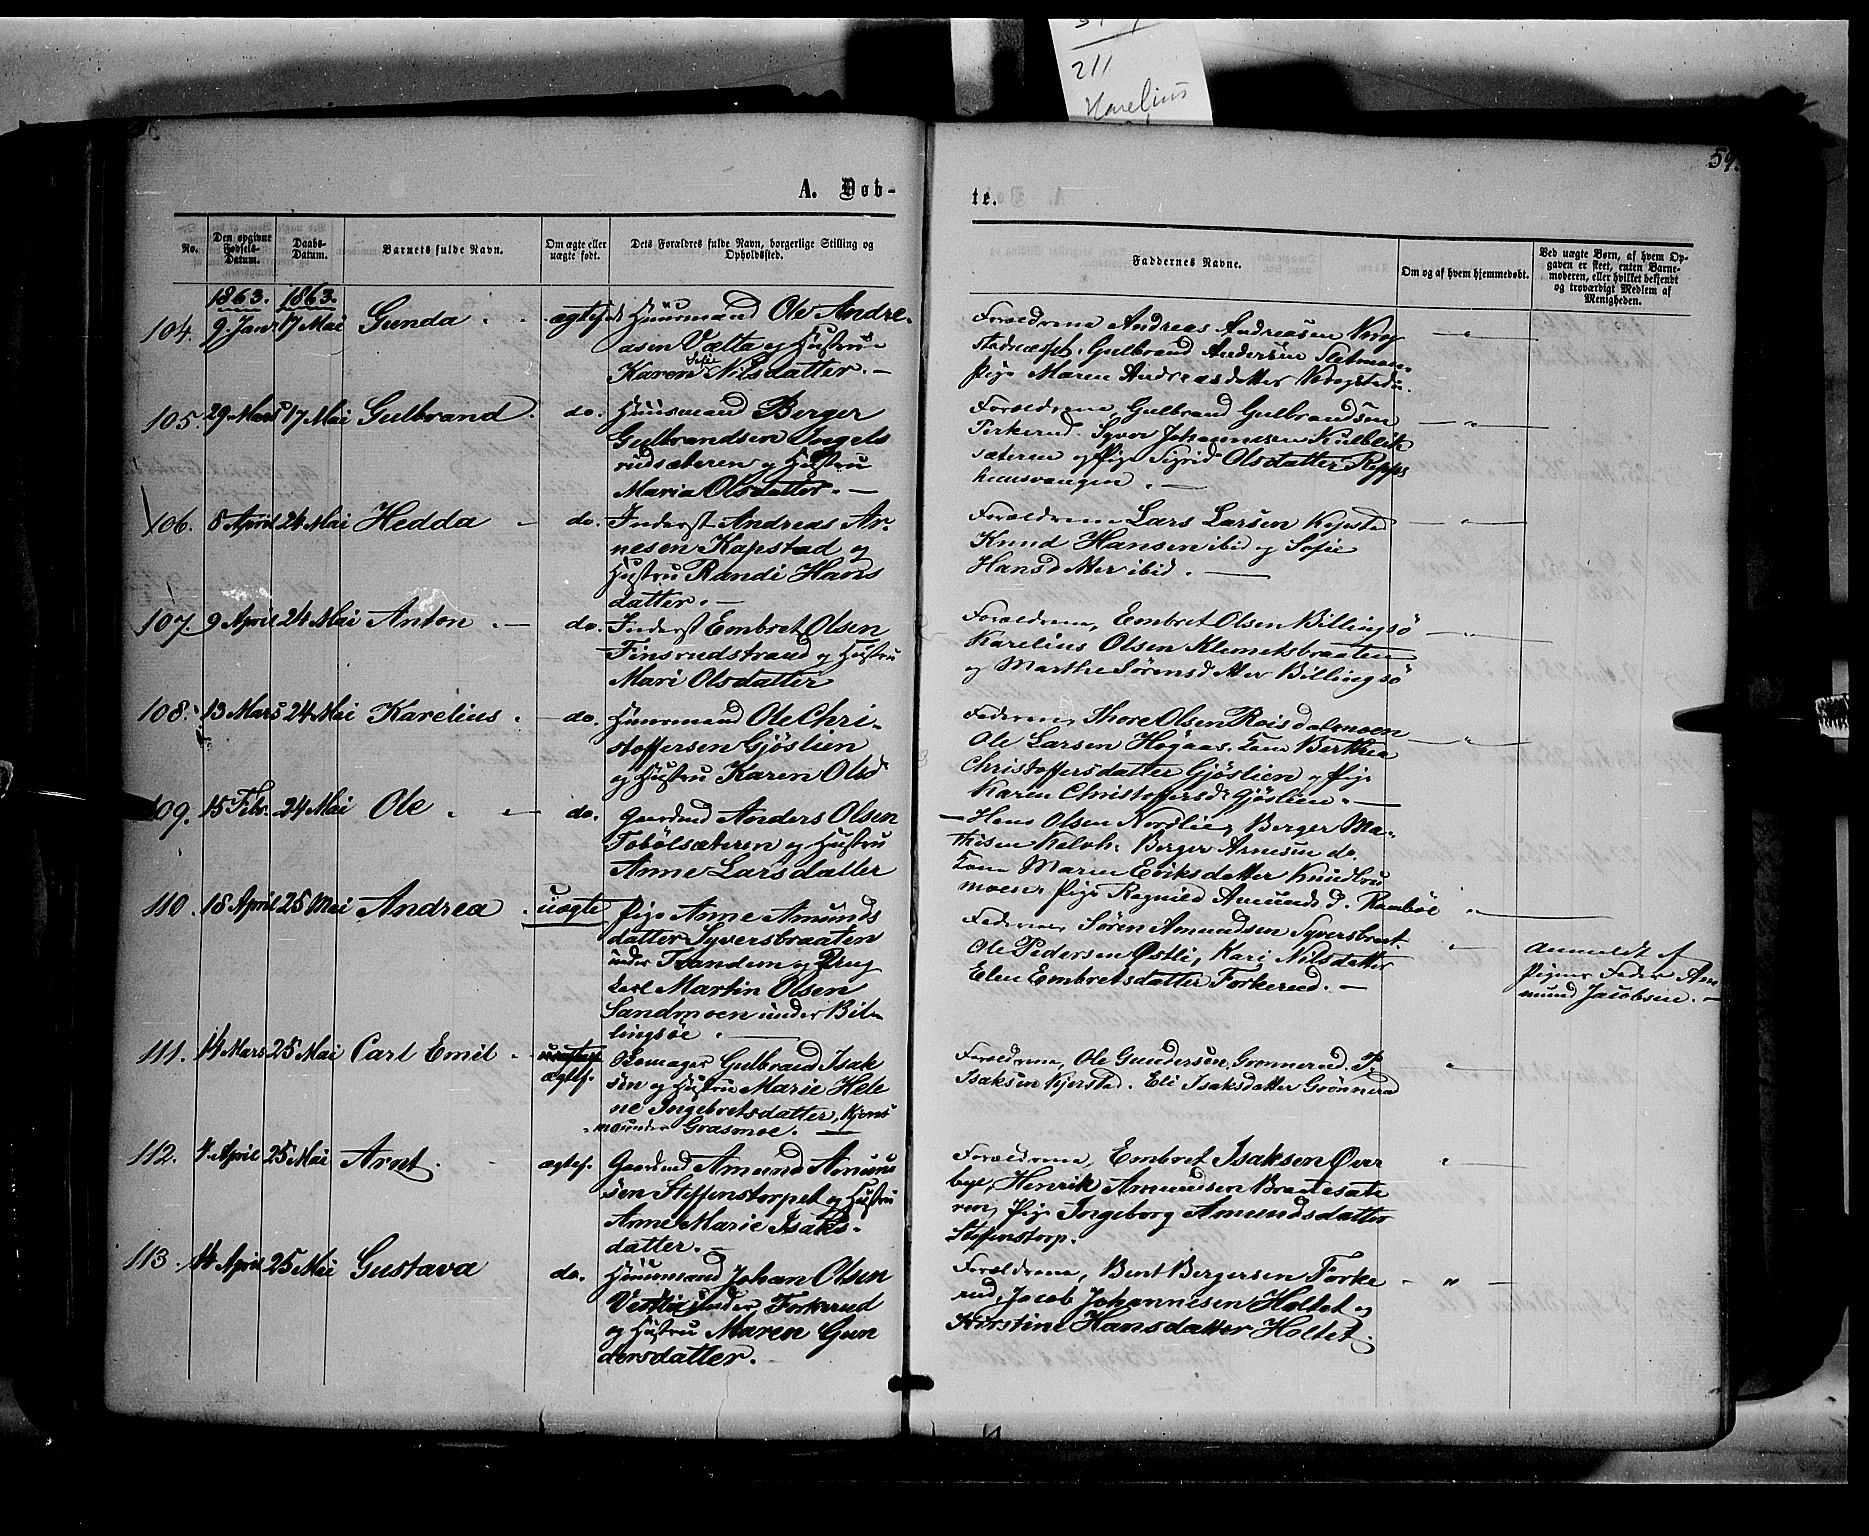 211
Karelius
59.
A. Døb-
te.
No.
Den opgivne Fødsels-Datum.
Daabs-Datum.
Barnets fulde Navn.
Om ægte eller uægte født.
Dets Forældres fulde Navn, borgerlige Stilling og Opholdssted.
Faddernes Navne.
Om og af hvem hjemmedøbt.
Ved uægte Børn, af hvem Opgaven er skeet, enten Barnemoderen, eller hvilket bekjendt og troværdigt Medlem af Menigheden.
1863. 1863.
104. 9. Janr 17 Mai Gunda ægtef.
Huusmand Ole Andre-
asen Vætta og Hustru
Karen Nilsdatter. —
Forældrene Andreas Andreasen
Gulbrand Andersen
Pige Maren Andreasdatter
105. 29 Mars 17 Mai Gulbrand. do.
Huusmand Berger
Gulbrandsen Ingels
rudsæteren og Hustru
Maria Olsdatter. —
Forældrene, Gulbrand Gulbrandsen
Syver Johannesen
sæteren og Pige Sigrid Olsdatter
106. 8 April 24 Mai Hedda — do.
Inderst Andreas Ar-
nesen Kapstad og
Hustru Randi Hans
datter. —
Forældrene Lars Larsen Kapstad
Knud Hansen ibid og Sofie
Hansdatter ibid. —
107. 9 April 24 Mai Anton. — do.
Inderst Embret Olsen
Finsrudstrand og Hustru
Mari Olsdatter
Forældrene, Embret Olsen Billingsö
Karelius Olsen Klemetsbraaten
og Marthe Sörensdatter Billingsö
108. 13 Mars 24 Mai Karelius. — do.
Huusmand Ole Chri-
stoffersen Gjöslien
og Hustru Karen Olsd
Faderen, Thore Olsen Roisdalsmoen
Ole Larsen Högaas. Kone Berthea
Christoffersdatter Gjöslien og Pige
Karen Christoffersd. Gjöslien. —
109. 15 Febr. 24 Mai Ole. — do.
Gaardmd Anders Olsen
Tobölsæteren og Hustru
Anne Larsdatter
— Hans Olsen Nordlie, Berger Ma-
thisen Berger Arnesen do.
Kone Maren Eriksdatter
moen Pige Ragnild Amundsd.
110. 18 April 25 Mai Andrea. uægte
Pige Anne Amunds
datter Syversbraaten
under Trandem og Ung
karl Martin Olsen
Sandmoen under Bil-
lingsöe. —
Faderen, Sören Amundsen Syversbraat.
Ole Pedersen Østli, Kari Nilsdatter
Elen Embretsdatter Forkerud. —
Anmeldt af
Pigens Fader Am
mund Jacobsen. —
111. 14 Mars 25 Mai Carl Emil. ægtef.
Gulbrand Isak
sen og Hustru Marie Hele
ne Ingebretsdatter, Kjons
mo under Grasmoe. —
Forældrene, Ole Gundersen Grönnerud. P.
Isaksen Kjerstad. Eli Isaksdatter Grönnerud
112. 4 April 25 Mai Arnt. ægtef.
Gaardmd Amund Amund
sen Steffenstorpet og Hustru
Anne Marie Isaks-
datter. —
Forældrene, Embret Isaksen Över
bye, Henrik Amundsen Braatesæte
ren, Pige Ingeborg Amundsdatter
Steffenstorp.
113. 14 April 25 Mai Gustava do.
Huusmand Johan Olsen
Vestlie under Forkerud
og Hustru Maren Gun
dersdatter. —
Forældrene, Bent Bergersen Forke
rud, Jacob Johannesen Holtet og
Kirstine Hansdatter Holtet.